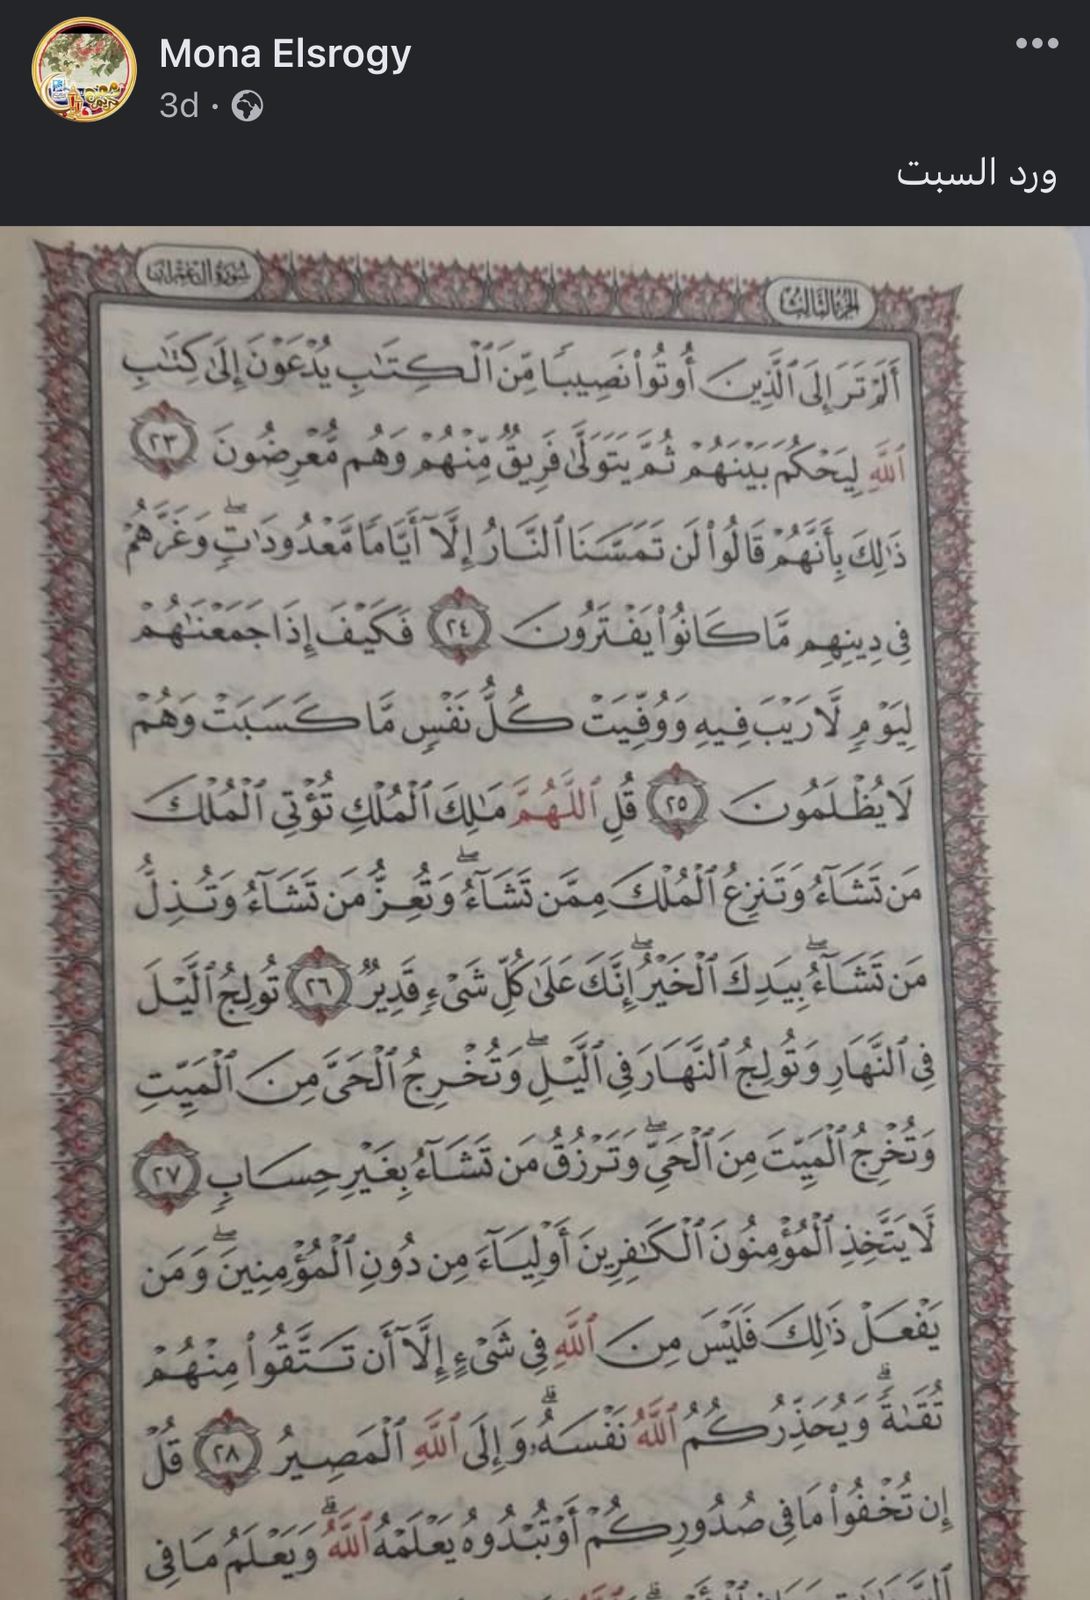 Mona Elsrogy
3d ·
ورد السبت
سورة آل عمران
الجزء الثالث
أَلَمْ تَرَ إِلَى ٱلَّذِينَ أُوتُوا۟ نَصِيبًا مِّنَ ٱلْكِتَـٰبِ يُدْعَوْنَ إِلَىٰ كِتَـٰبِ
ٱللَّهِ لِيَحْكُمَ بَيْنَهُمْ ثُمَّ يَتَوَلَّىٰ فَرِيقٌ مِّنْهُمْ وَهُم مُّعْرِضُونَ ٢٣
ذَٰلِكَ بِأَنَّهُمْ قَالُوا۟ لَن تَمَسَّنَا ٱلنَّارُ إِلَّآ أَيَّامًا مَّعْدُودَٰتٍ ۖ وَغَرَّهُمْ
فِى دِينِهِم مَّا كَانُوا۟ يَفْتَرُونَ ٢٤ فَكَيْفَ إِذَا جَمَعْنَـٰهُمْ
لِيَوْمٍ لَّا رَيْبَ فِيهِ وَوُفِّيَتْ كُلُّ نَفْسٍ مَّا كَسَبَتْ وَهُمْ
لَا يُظْلَمُونَ ٢٥ قُلِ ٱللَّهُمَّ مَـٰلِكَ ٱلْمُلْكِ تُؤْتِى ٱلْمُلْكَ
مَن تَشَآءُ وَتَنزِعُ ٱلْمُلْكَ مِمَّن تَشَآءُ ۖ وَتُعِزُّ مَن تَشَآءُ وَتُذِلُّ
مَن تَشَآءُ ۖ بِيَدِكَ ٱلْخَيْرُ ۖ إِنَّكَ عَلَىٰ كُلِّ شَىْءٍ قَدِيرٌ ٢٦ تُولِجُ ٱلَّيْلَ
فِى ٱلنَّهَارِ وَتُولِجُ ٱلنَّهَارَ فِى ٱلَّيْلِ ۖ وَتُخْرِجُ ٱلْحَىَّ مِنَ ٱلْمَيِّتِ
وَتُخْرِجُ ٱلْمَيِّتَ مِنَ ٱلْحَىِّ ۖ وَتَرْزُقُ مَن تَشَآءُ بِغَيْرِ حِسَابٍ ٢٧
لَّا يَتَّخِذِ ٱلْمُؤْمِنُونَ ٱلْكَـٰفِرِينَ أَوْلِيَآءَ مِن دُونِ ٱلْمُؤْمِنِينَ ۖ وَمَن
يَفْعَلْ ذَٰلِكَ فَلَيْسَ مِنَ ٱللَّهِ فِى شَىْءٍ إِلَّآ أَن تَتَّقُوا۟ مِنْهُمْ
تُقَىٰةً ۗ وَيُحَذِّرُكُمُ ٱللَّهُ نَفْسَهُۥ ۗ وَإِلَى ٱللَّهِ ٱلْمَصِيرُ ٢٨ قُلْ
إِن تُخْفُوا۟ مَا فِى صُدُورِكُمْ أَوْ تُبْدُوهُ يَعْلَمْهُ ٱللَّهُ ۗ وَيَعْلَمُ مَا فِى